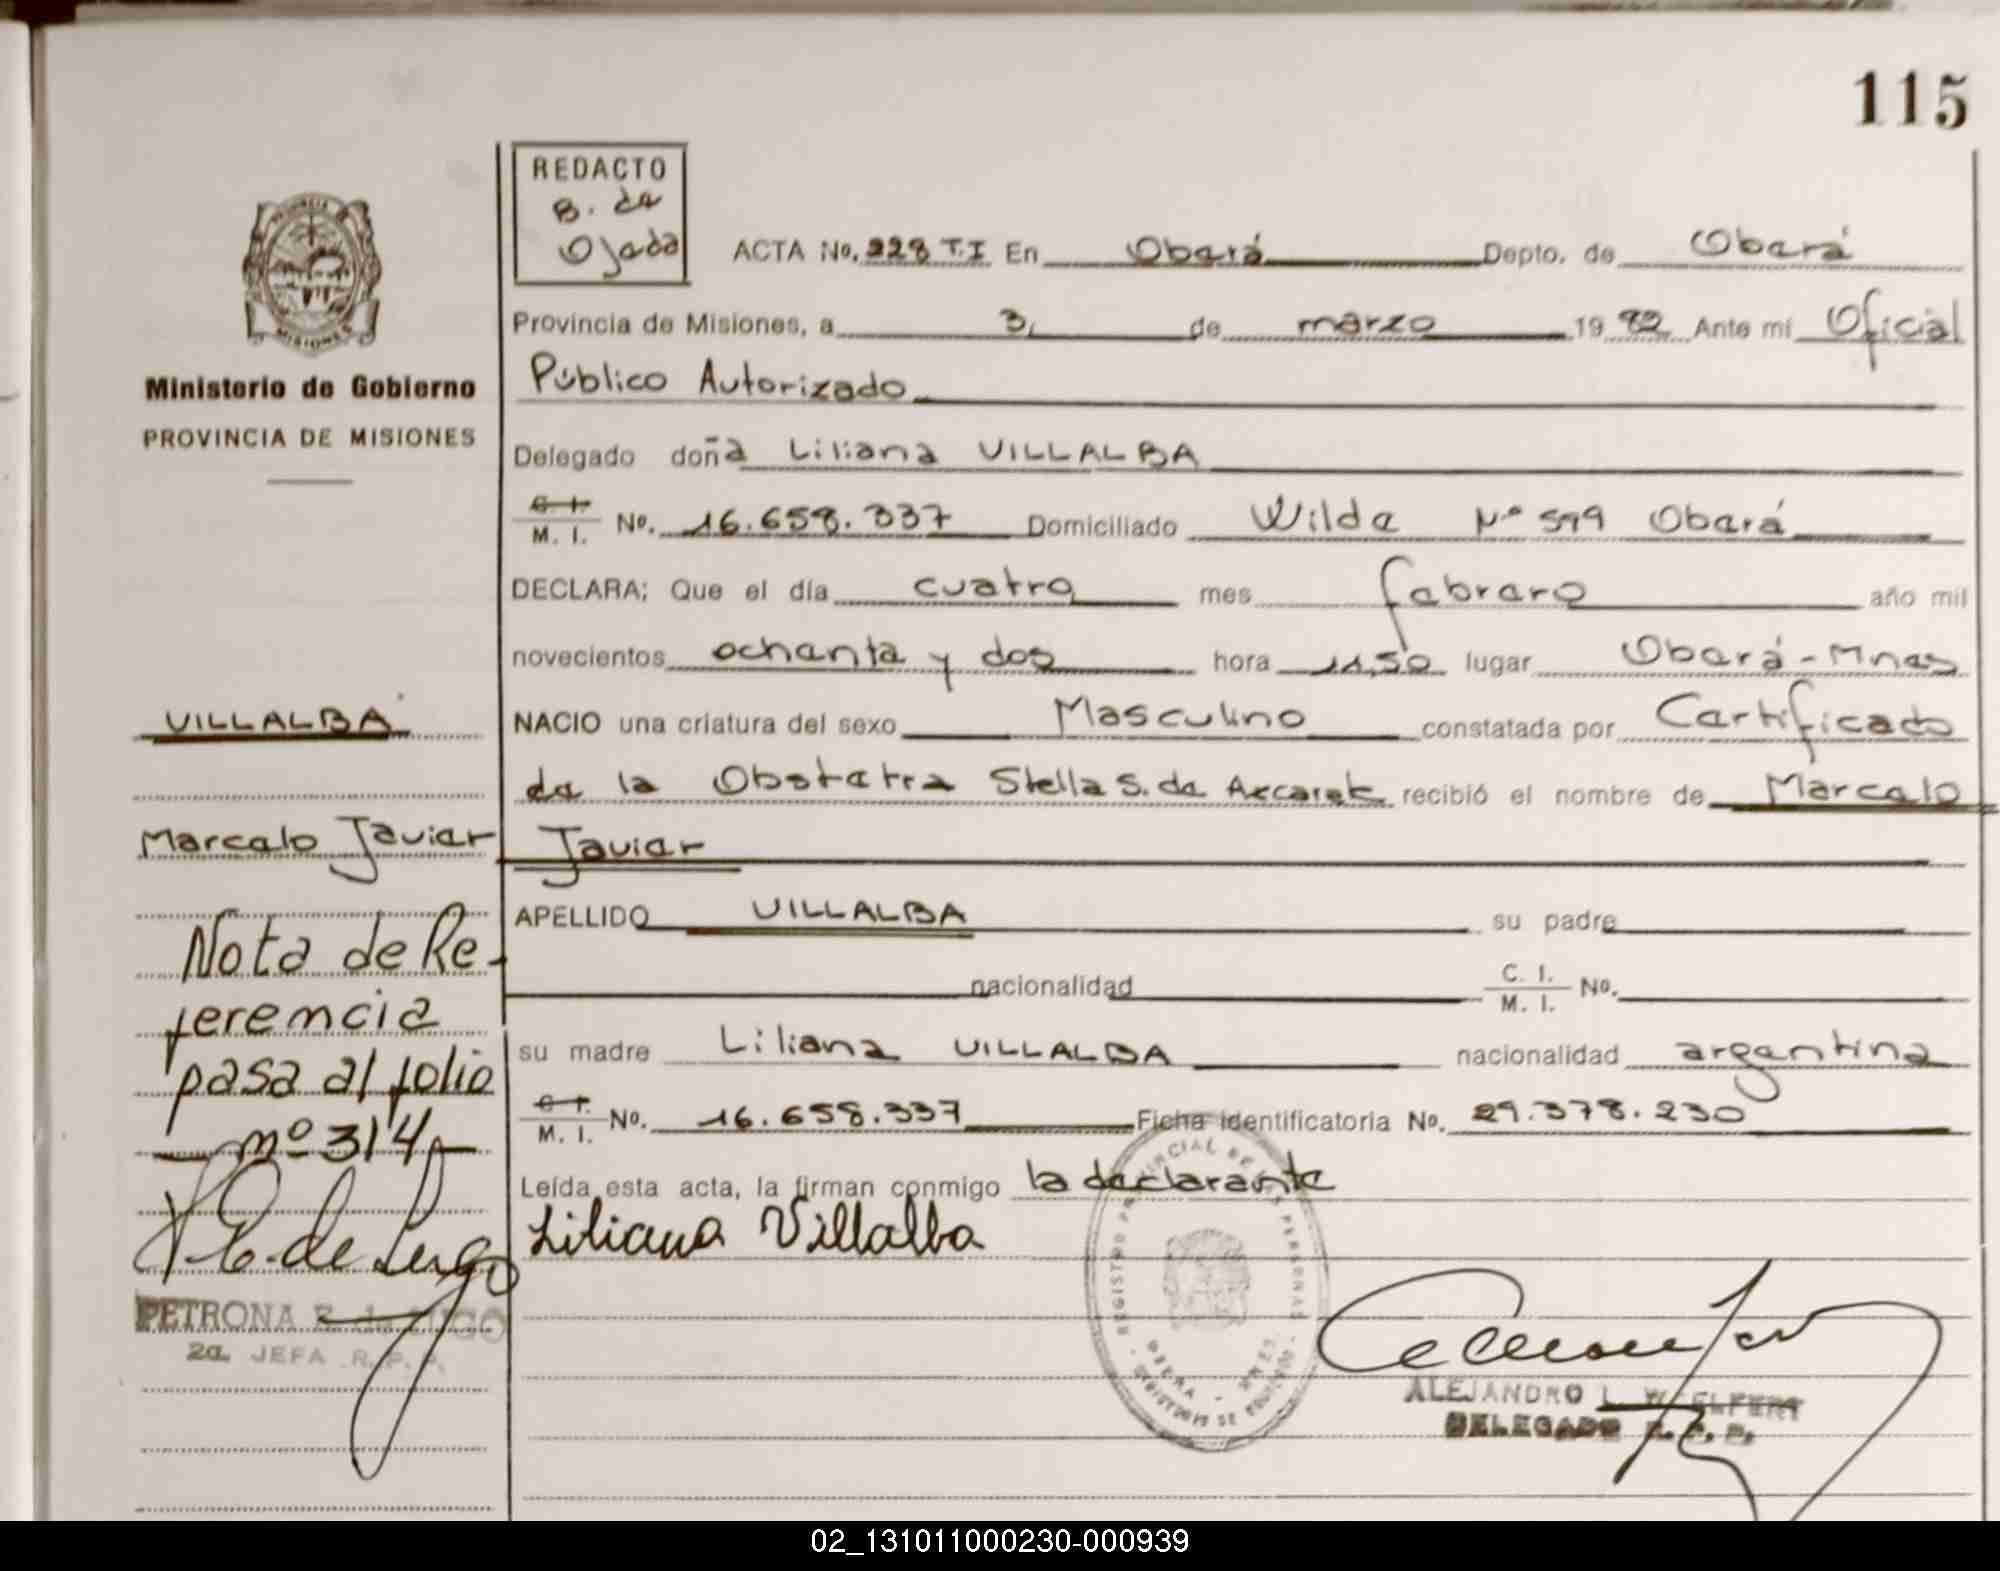 115
REDACTO
B. de
Ojeda
ACTA No. 228 T.I En Oberá Depto. de Oberá
Provincia de Misiones, a 3, de marzo 1982 Ante mí Oficial
Público Autorizado
Ministerio de Gobierno
PROVINCIA DE MISIONES
Delegado doña Liliana VILLALBA
C. I.
M. I. No. 16.658.337 Domiciliado Wilde Nº 599 Oberá
DECLARA; Que el día cuatro mes febrero año mil
novecientos ochenta y dos hora 11,50 lugar Oberá - Mnes
VILLALBA
NACIO una criatura del sexo Masculino constatada por Certificado
de la Obstetra Stella S. de recibió el nombre de Marcelo
Marcelo Javier
Javier
APELLIDO VILLALBA su padre
Nota de Re-
ferencia
pasa al folio
nº 314
nacionalidad C. I.
M. I. No.
su madre Liliana VILLALBA nacionalidad argentina
C. I.
M. I. No. 16.658.337 Ficha identificatoria No. 29.378.230
Leída esta acta, la firman conmigo la declarante
Liliana Villalba
P. E. de Lugo
PETRONA E. de LUGO
2a. JEFA R. P. P.
REGISTRO PROVINCIAL DE LAS PERSONAS
OBERA - MNES
ALEJANDRO L. W. ELFERT
DELEGADO R. P. P.
02_131011000230-000939